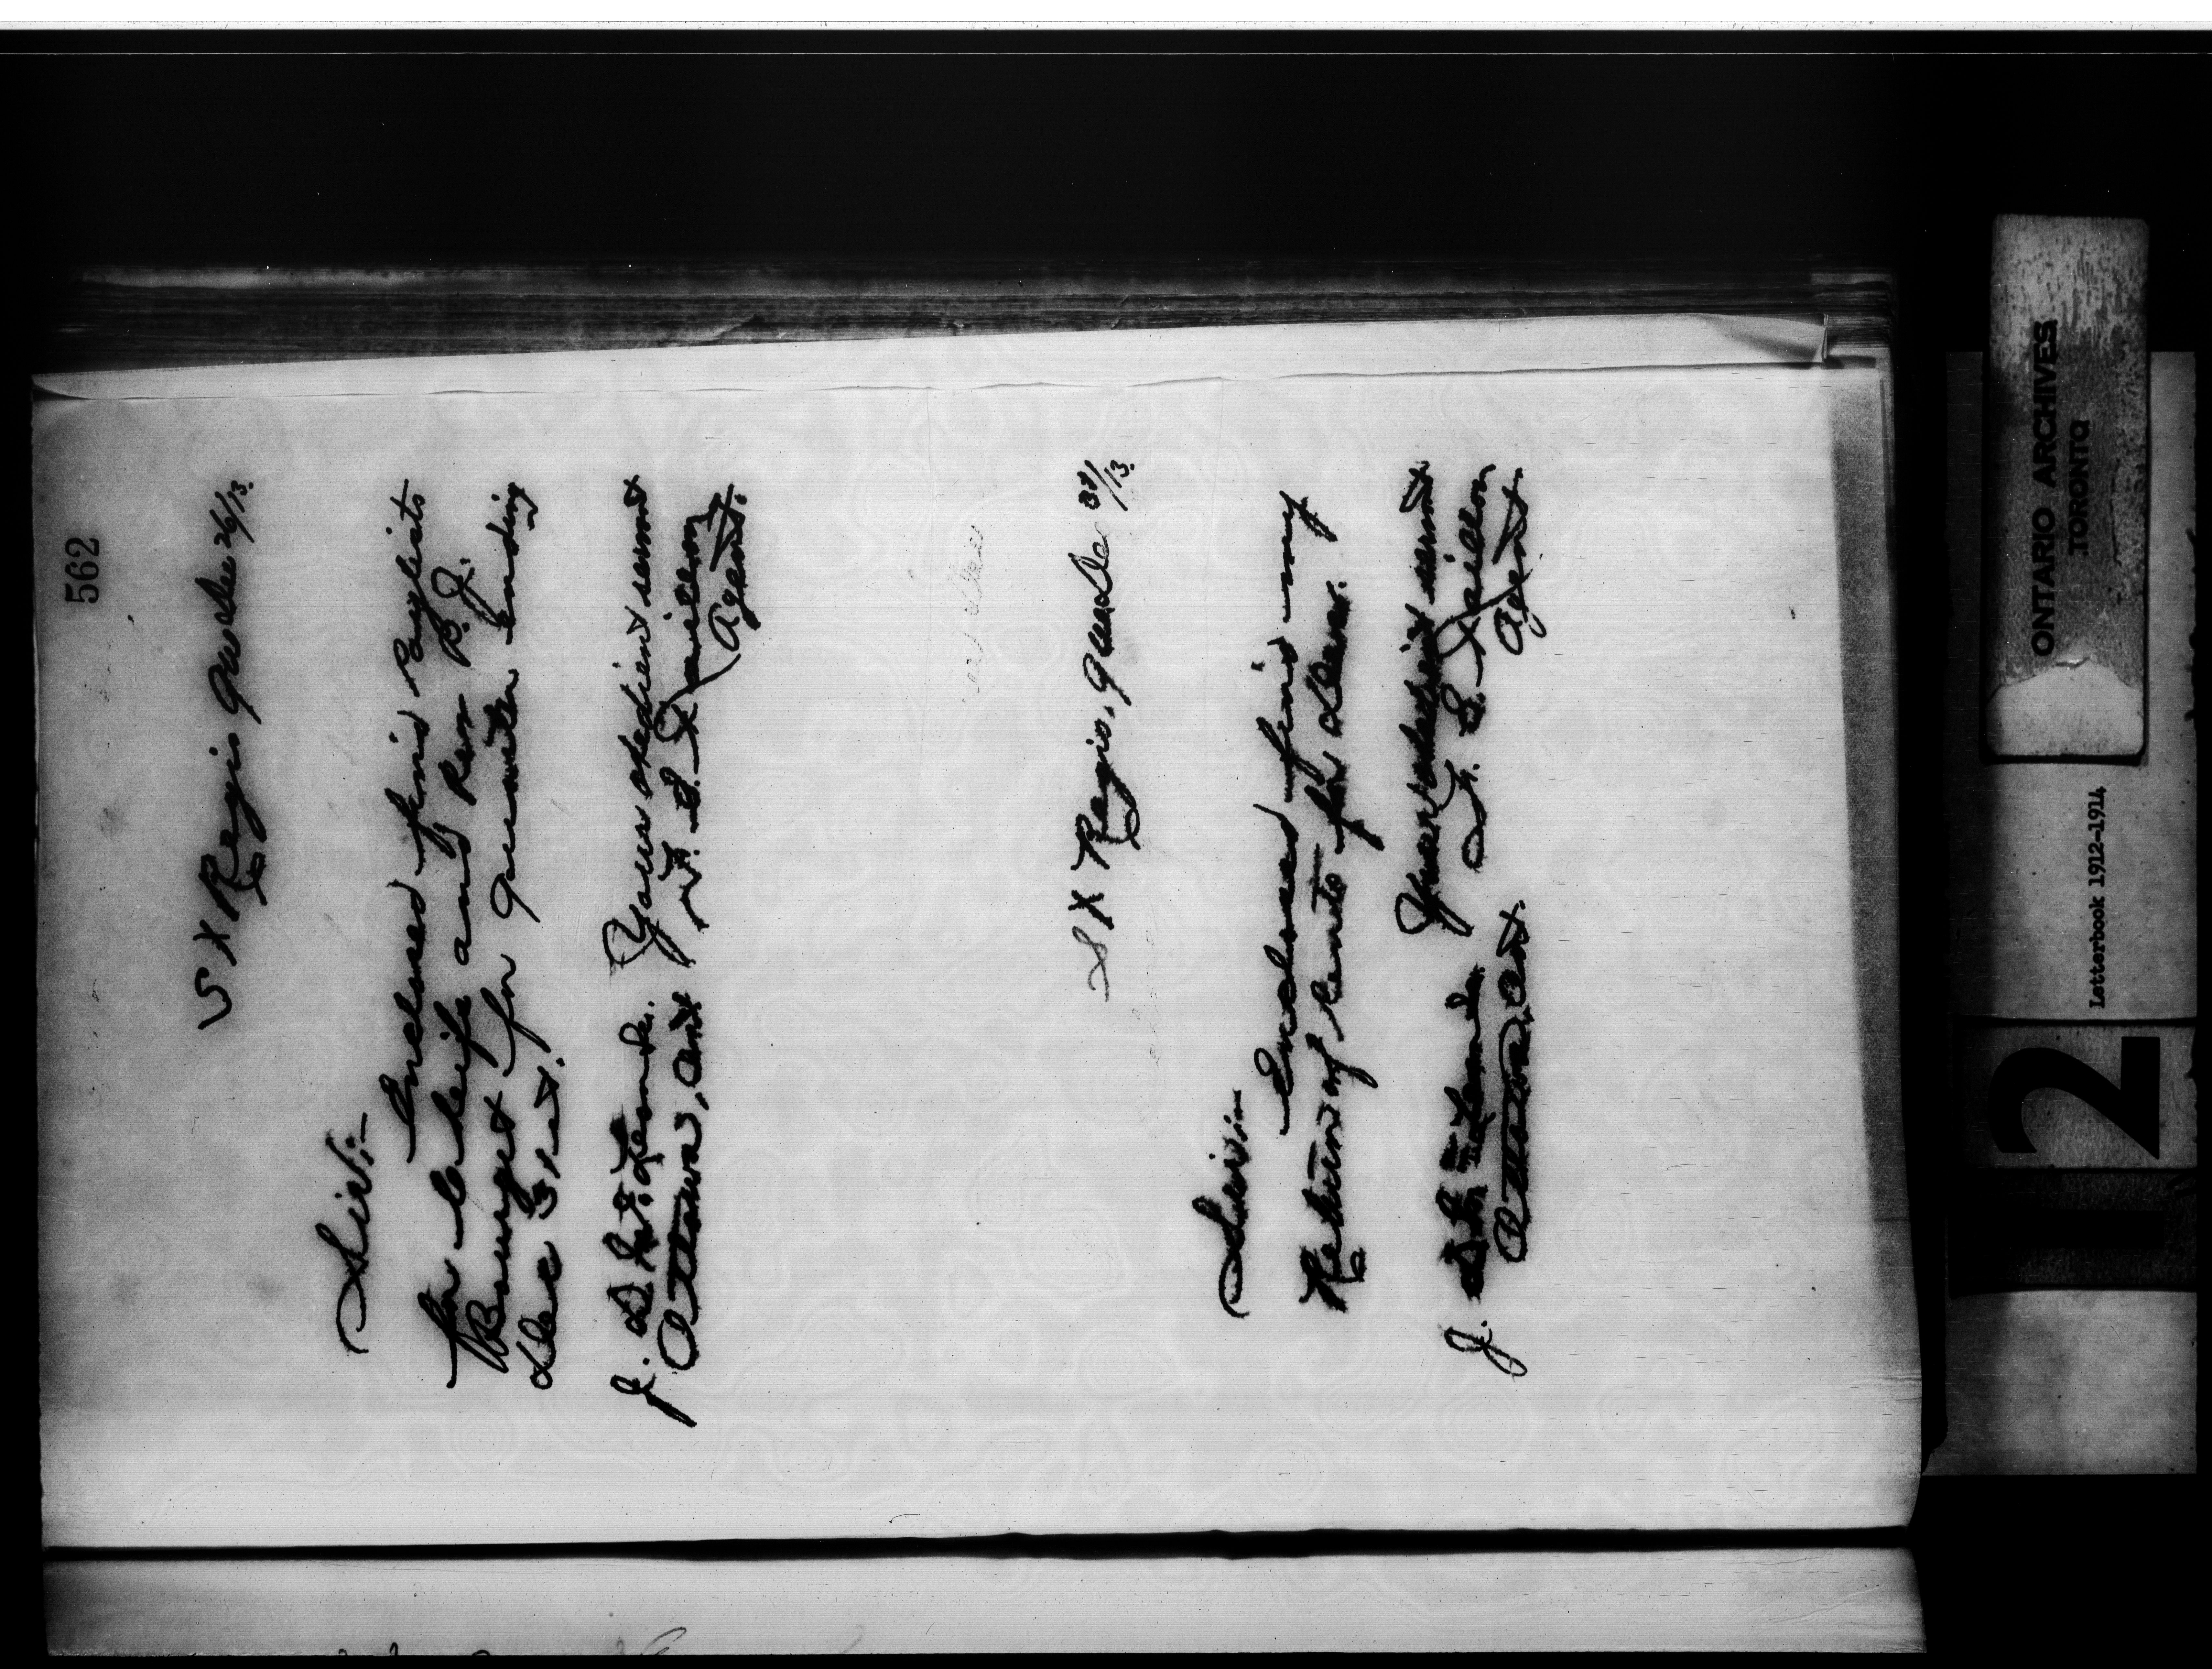 562
St Regis Que Dec 26/13.
Sir:-
Inclosed find Paylists
for Cheifs and Rev P. J.
Bourget for quarter ending
Dec 31st.
Your obedient servant
J. D. McLean Sec.
F. E. Taillon
Ottawa, Ont
Agent.
St Regis, Que De 31/13.
Sir:-
Enclosed find my
Return of Rents for Dec.
Your obedient servant
J. D. McLean Sec.
F. E. Taillon
Ottawa, Ont.
Agent.
ONTARIO ARCHIVES
TORONTO
Letterbook 1912-1914
2